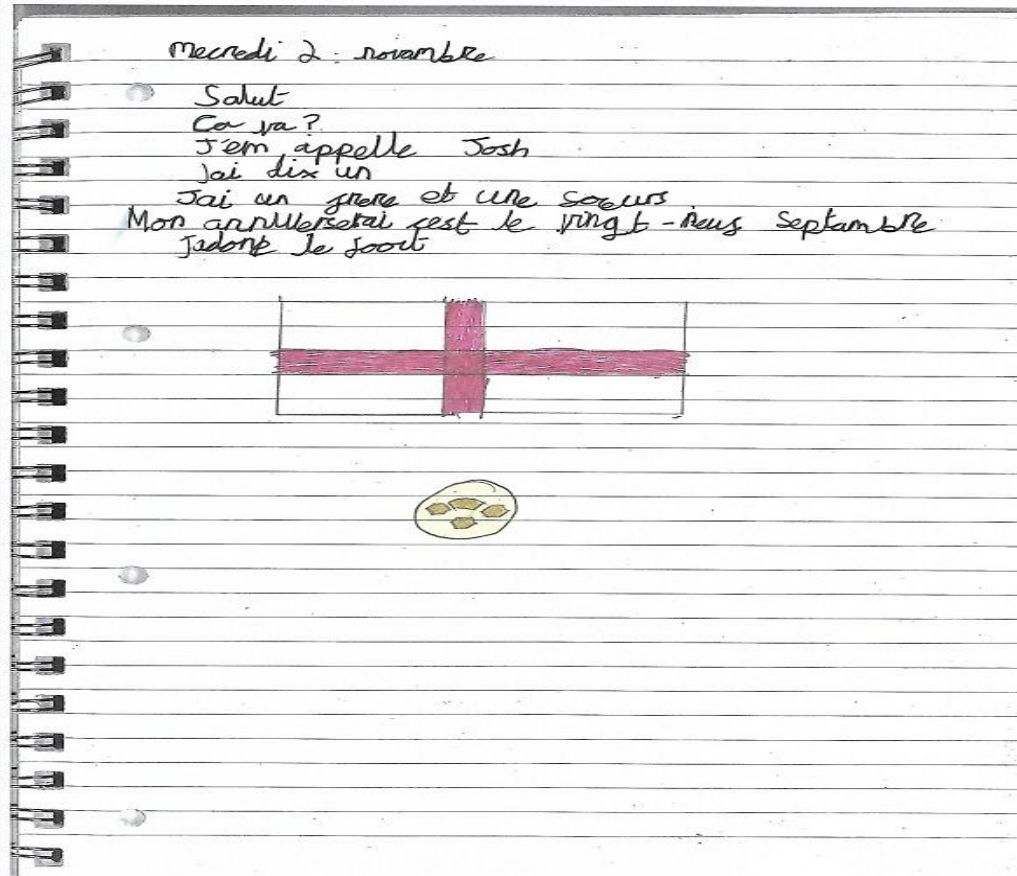 Mecredi 2. novambre
Salut
Ca va?
J'em appelle Josh
Jai dix un
Jai un frere et une soeurs.
Mon anniverserai cest le vingt-neuf Septambre
Jadore le foot